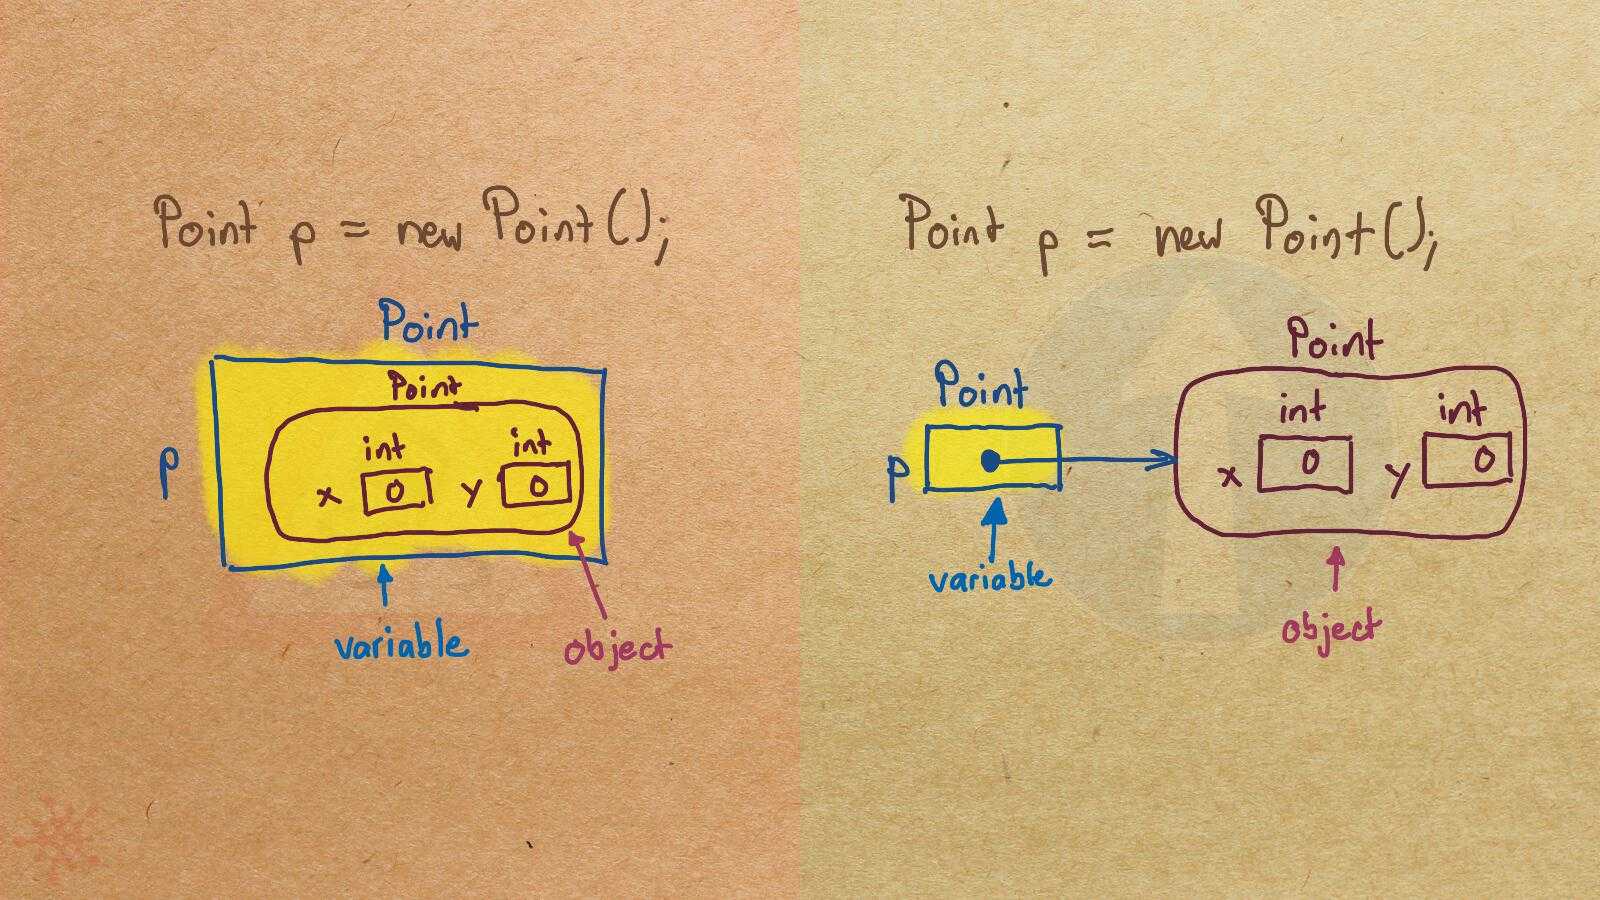 Point p = new Point();
Point
Point
int int
p x 0 y 0
variable
object
Point p = new Point();
Point
Point
int int
p x 0 y 0
variable
object